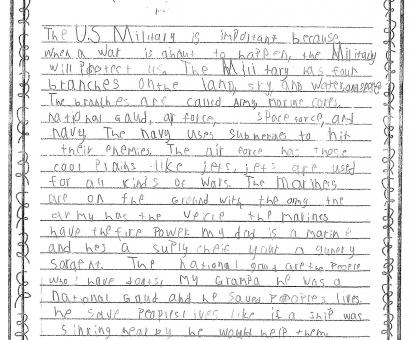 The U.S Military is important because
when a war is about to happen, the Military
will Protect us. The Military has four
branches on the land, sky and water and space
The branches are called Army, marine cores,
national Gaud, air force, space sorce, and
navy. The navy uses submerines to hit
their enemies. The air force has those
cool Plains like jets, jets are used
for all kinds of wars. The marines
are on the ground with the army the
army has the the marines
have the fire Power my dad is a marine
and hes a suply cheif a gunery
sargent. The national gaud are the People
who My Grampa he was a
national Gaud and he saved PeoPles lives
he save PeoPles lives like is a ship was
sinking nearby he would help them.